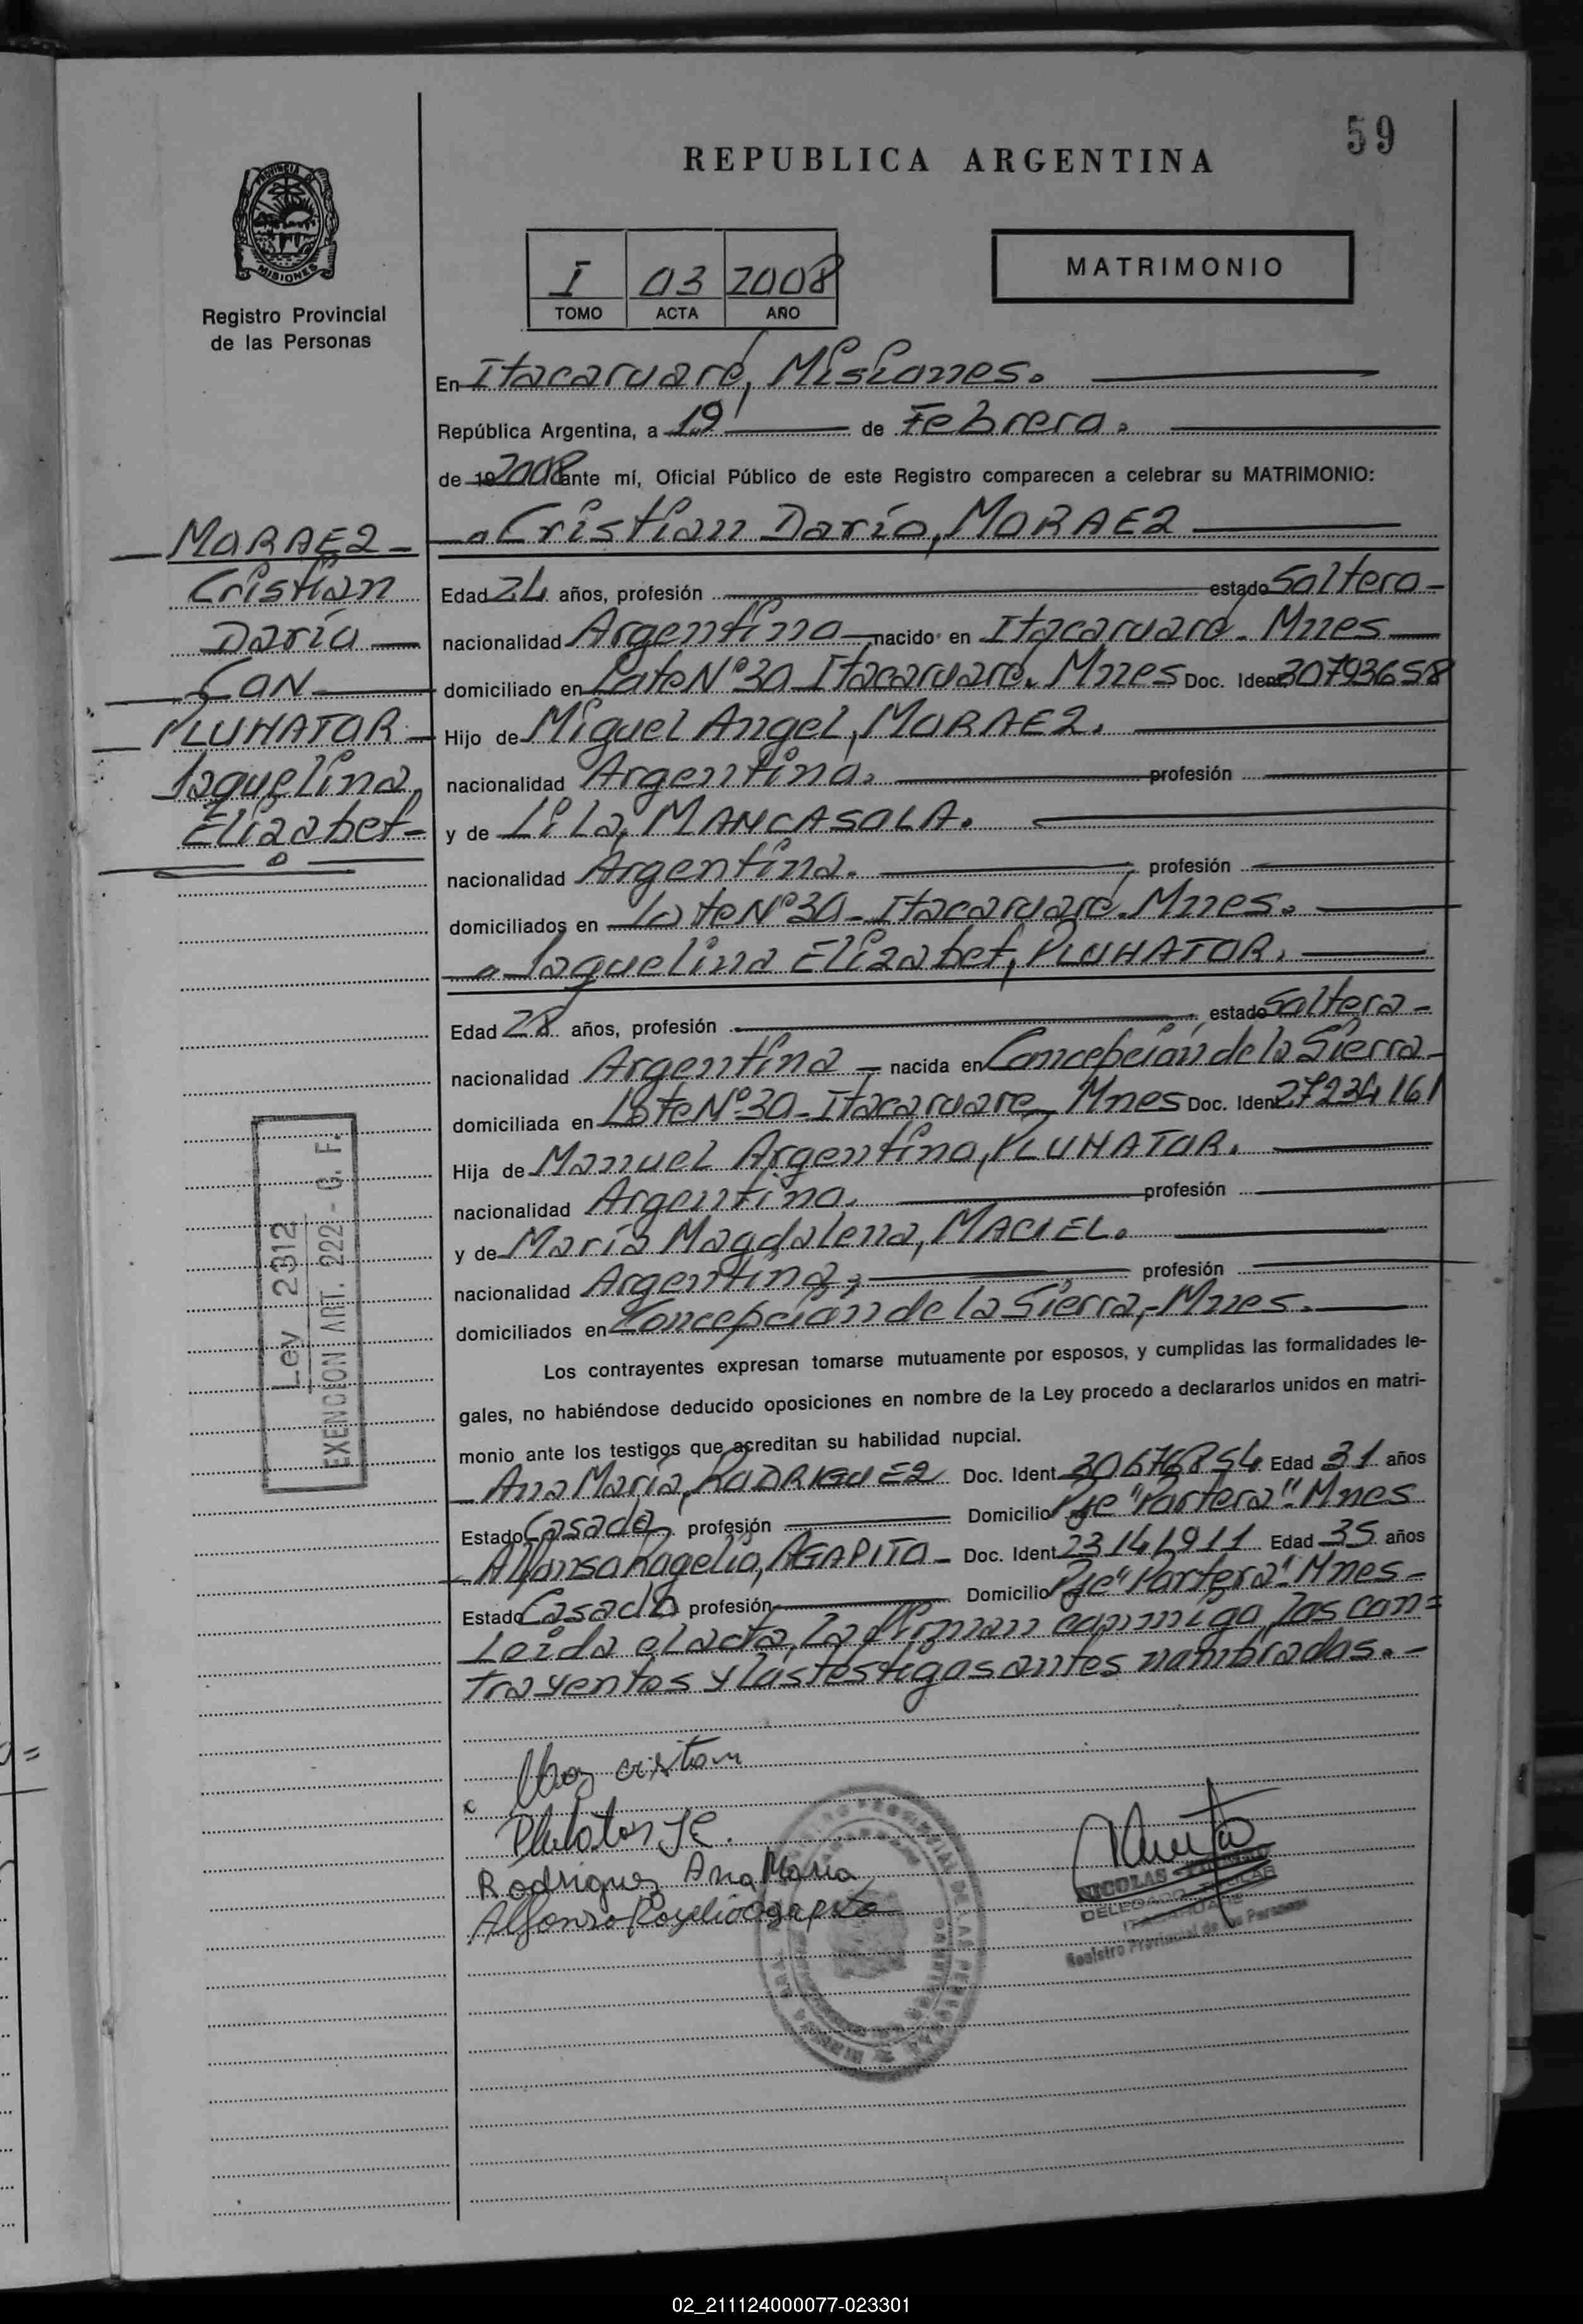 59
REPUBLICA ARGENTINA
PROVINCIA DE
MISIONES
Registro Provincial
de las Personas
I 03 2008
TOMO ACTA AÑO
MATRIMONIO
En Itacaruaré, Misiones.
República Argentina, a 19 de Febrero.
de 19 2008 ante mí, Oficial Público de este Registro comparecen a celebrar su MATRIMONIO:
Cristian Darío, MORAEZ
MORAEZ
Cristian
Darío
CON
PLUHATOR
Jaquelina
Elizabet
Edad 24 años, profesión estado Soltero
nacionalidad Argentino nacido en Itacaruaré - Mnes
domiciliado en Lote Nº 30 Itacaruaré. Mnes Doc. Ident 30793658
Hijo de Miguel Angel, MORAEZ.
nacionalidad Argentina. profesión
y de Lila, MANCASOLA.
nacionalidad Argentina. profesión
domiciliados en Lote Nº 30 - Itacaruaré. Mnes.
Jaquelina Elizabet, PLUHATOR.
Edad 28 años, profesión estado Soltera
nacionalidad Argentina nacida en Concepción de la Sierra
domiciliada en Lote Nº 30 - Itacaruaré Mnes Doc. Ident 27234161
Hija de Manuel Argentino, PLUHATOR.
nacionalidad Argentino. profesión
y de María Magdalena, MACIEL.
nacionalidad Argentina, profesión
domiciliados en Concepción de la Sierra, - Mnes.
Ley 2312
EXENCION ART. 222 - C. F.
Los contrayentes expresan tomarse mutuamente por esposos, y cumplidas las formalidades le-
gales, no habiéndose deducido oposiciones en nombre de la Ley procedo a declararlos unidos en matri-
monio ante los testigos que acreditan su habilidad nupcial.
Ana María, RODRIGUEZ Doc. Ident 30676854 Edad 31 años
Estado Casada profesión Domicilio Pje "Portera" Mnes
Alfonso Rogelio, AGAPITO Doc. Ident 23141911 Edad 35 años
Estado Casado profesión Domicilio Pje "Portera" Mnes
Leída el acta, la firman conmigo, los con=
trayentes y los testigos antes nombrados.
cristian
Pluhator JE.
Rodriguez Ana Maria
Alfonso Rogelio agapito
NICOLAS
DELEGADO TITULAR
ITACARUARE
Registro Provincial de las Personas
02_211124000077-023301